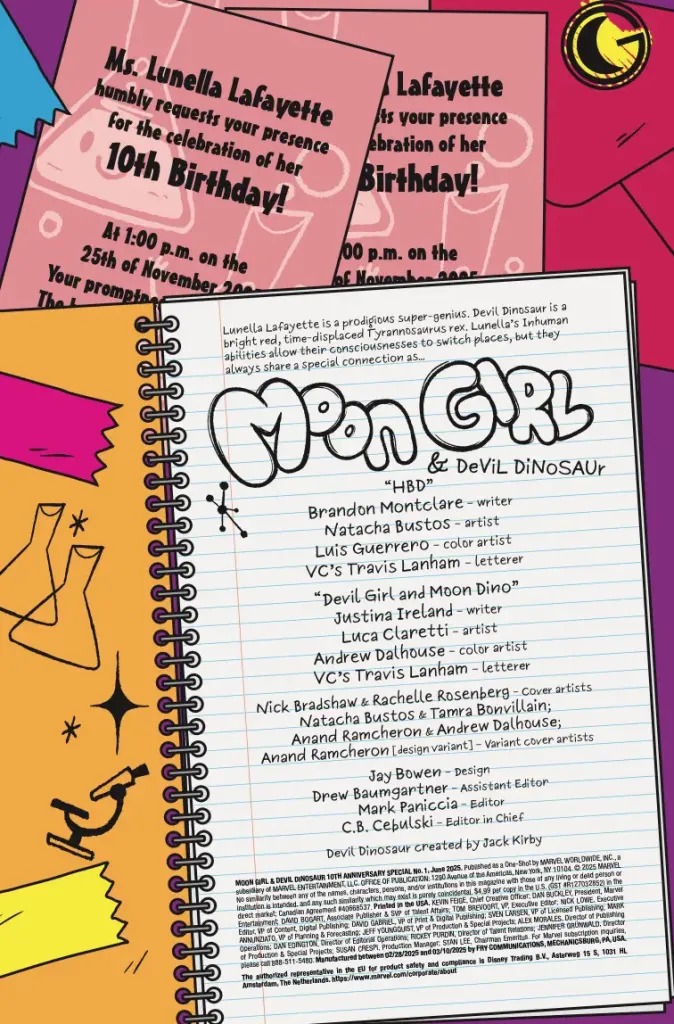 Ms. Lunella Lafayette
humbly requests your presence
for the celebration of her
10th Birthday!
At 1:00 p.m. on the
25th of November
Your
The
Lafayette
presence
of her
Birthday!
p.m. on the
of November
Lunella Lafayette is a prodigious super-genius. Devil Dinosaur is a
bright red, time-displaced Tyrannosaurus rex. Lunella's Inhuman
abilities allow their consciousnesses to switch places, but they
always share a special connection as...
Moon GIRL
& DeViL DiNoSAUr
"HBD"
Brandon Montclare - writer
Natacha Bustos - artist
Luis Guerrero - color artist
VC's Travis Lanham - letterer
"Devil Girl and Moon Dino"
Justina Ireland - writer
Luca Claretti - artist
Andrew Dalhouse - color artist
VC's Travis Lanham - letterer
Nick Bradshaw & Rachelle Rosenberg - Cover artists
Natacha Bustos & Tamra Bonvillain;
Anand Ramcheron & Andrew Dalhouse;
Anand Ramcheron [design variant] - Variant cover artists
Jay Bowen - Design
Drew Baumgartner - Assistant Editor
Mark Paniccia - Editor
C.B. Cebulski - Editor in Chief
Devil Dinosaur created by Jack Kirby
MOON GIRL & DEVIL DINOSAUR 10TH ANNIVERSARY SPECIAL No. 1, June 2025. Published as a One-Shot by MARVEL WORLDWIDE, INC., a
subsidiary of MARVEL ENTERTAINMENT, LLC. OFFICE OF PUBLICATION: 1290 Avenue of the Americas, New York, NY 10104. © 2025 MARVEL
No similarity between any of the names, characters, persons, and/or institutions in this magazine with those of any living or dead person or
institution is intended, and any such similarity which may exist is purely coincidental. $4.99 per copy in the U.S. (GST #R127032852) in the
direct market; Canadian Agreement #40668537. Printed in the USA. KEVIN FEIGE, Chief Creative Officer; DAN BUCKLEY, President, Marvel
Entertainment; DAVID BOGART, Associate Publisher & SVP of Talent Affairs; TOM BREVOORT, VP, Executive Editor; NICK LOWE, Executive
Editor, VP of Content, Digital Publishing; DAVID GABRIEL, VP of Print & Digital Publishing; SVEN LARSEN, VP of Licensed Publishing; MARK
ANNUNZIATO, VP of Planning & Forecasting; JEFF YOUNGQUIST, VP of Production & Special Projects; ALEX MORALES, Director of Publishing
Operations; DAN EDINGTON, Director of Editorial Operations; RICKEY PURDIN, Director of Talent Relations; JENNIFER GRÜNWALD, Director
of Production & Special Projects; SUSAN CRESPI, Production Manager; STAN LEE, Chairman Emeritus. For Marvel subscription inquiries,
please call 888-511-5480. Manufactured between 02/28/2025 and 03/10/2025 by FRY COMMUNICATIONS, MECHANICSBURG, PA, USA.
The authorized representative in the EU for product safety and compliance is Disney Trading B.V., Asterweg 15 S, 1031 HL
Amsterdam, The Netherlands. https://www.marvel.com/corporate/about